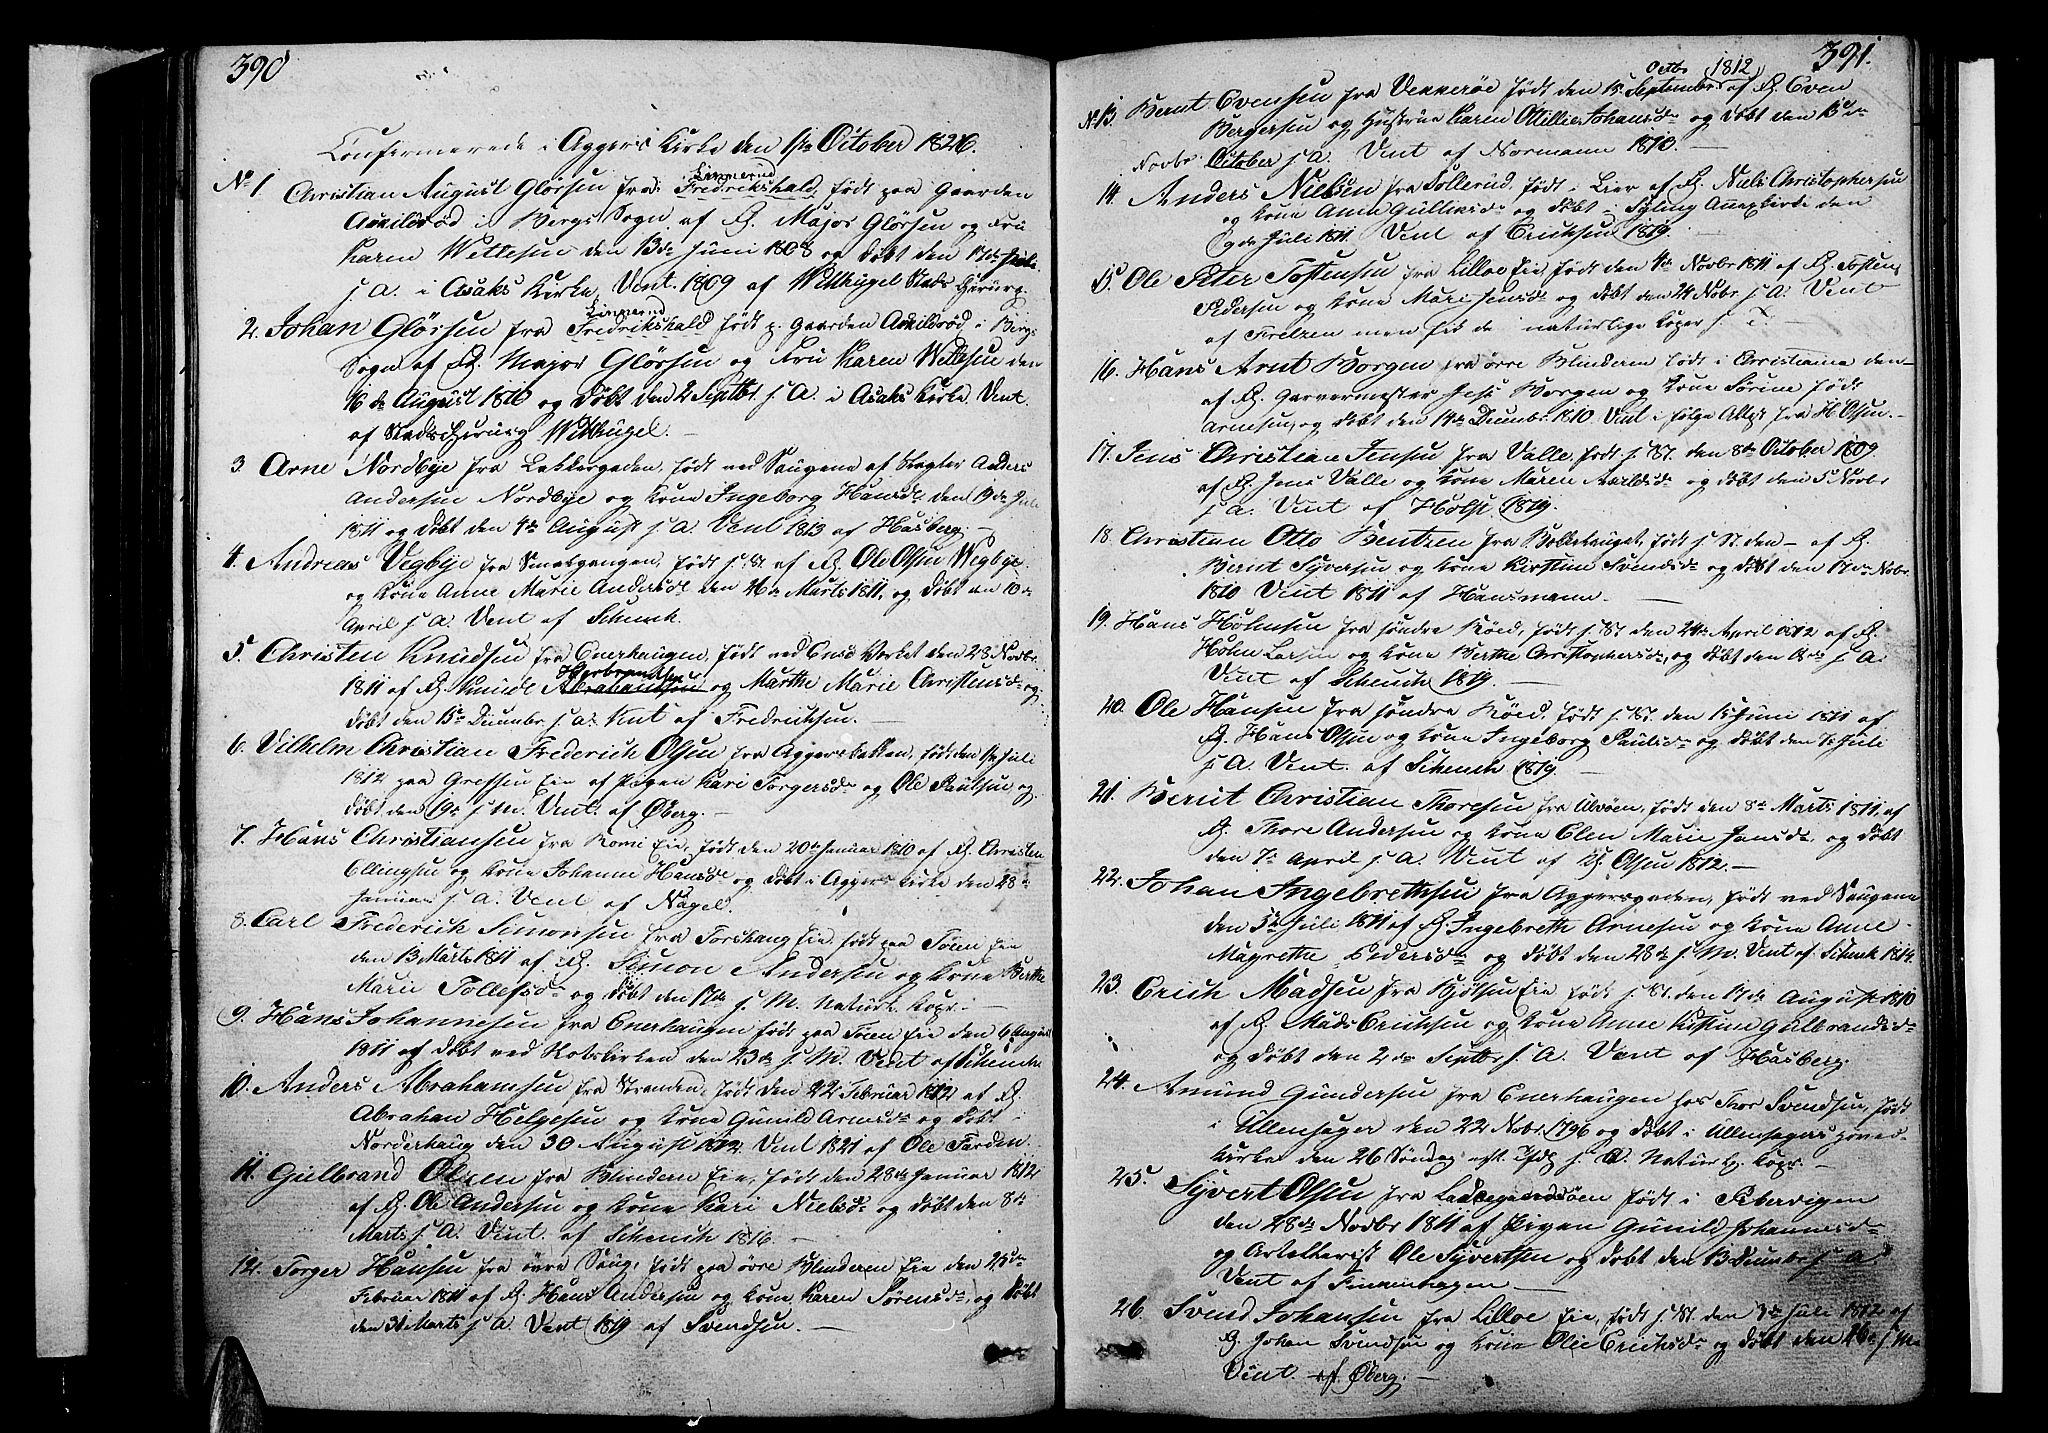 390
Confirmerede i Aggers Kirke den 1ste October 1826.
Linnerud
No 1. Christian August Glörsen fra Fredrikshald, födt paa Gaarden
Askildröd i Bergs Sogn af Æ. Major Glörsen og Fru
Karen Wettesen den 13de Juni 1808 og döbt den 12de Juli
s. A. i Asaks Kirke, Vent. 1809 af Withügel Stads Chirurg.
Linnerud
2. Johan Glörsen fra Fredrikshald födt p. Gaarden Askildröd i Bergs
Sogn af Æ. Major Glörsen og Fru Karen Wettesen den
16de August 1810 og döbt den 2 Septbr s. A. i Asaks Kirke. Vent.
af Stadschirurg Withügel.
3. Arne Nordbye fra Lakkergaden, födt ved Saugene af Anders
Andersen Nordbye og Kone Ingeborg Hansdr den 19de Juli
1811 og döbt den 4de August s. A. Vent 1813 af Hasberg.
4. Andreas Vegbye fra Smalgangen, födt s. St. af Æ. Ole Olsen Wegbye
og Kone Anne Marie Andersdr den 26de Marts 1811, og döbt den 10de
April s. A. Vent af Schenck.
5. Christen Knudsen fra Enerhaugen, födt ved Ensö Verket den 28 Novbr.
Herbrandsen
1811 af Æ. Knud Abrahamsen og Marthe Marie Christensdr og
döbt den 15de Decembr. s. A. Vent af Fredricksen.
6. Vilhelm Christian Frederich Olsen fra Aggersbakken, födt den 1ste Juli
1812 paa Grefsen Eie af Pigen Kari Torgersdr og Ole Paulsen og
döbt den 19de s. M. Vent. af Øberg.
7. Hans Christiansen fra Komi Eie, födt den 20de Januar 1810 af Æ. Christen
Ellingsen og Kone Johanne Hansdr og döbt i Aggers Kirke den 28de
Januar s. A. Vent af Nagel.
8. Carl Frederich Simonsen fra Torshaug Eie, födt paa Töien Eie
den 13 Marts 1811 af Æ. Simon Andersen og Kone Berthe
Marie Tollefsdr og döbt den 17de s. M. Naturl. Kopr.
9. Hans Johannesen fra Enerhaugen födt paa Töien Eie den 6 August
1811 og döbt ved Kirken den 23de s. M. Vent af Schencke
10. Anders Abrahamsen fra Stranden, födt den 22 Februar 1812 af Æ.
Abraham Helgesen og Kone Gunild Arnesdr og döbt i
Norderhaug den 30 August 1812. Vent 1821 af Ole Farden.
11. Gulbrand Olsen fra Blindern Eie, födt den 28de Januar 1812
af Æ. Ole Andersen og Kone Kari Nielsdr og döbt den 8de
Marts s. A. Vent. af Schenck 1816.
12. Torger Hansen fra övre Saug, födt paa övre Blinderen Eie den 25de
Februar 1811 af Æ. Hans Andersen og Kone Karen Sörensdr, og döbt
den 31 Marts s. A. Vent 1819 af Svendsen.
391.
Octbr 1812
No 13. Bernt Evensen fra Vekkeröe födt den 15 September af Æ. Even
Bergersen og Hustrue Karen Ottillie Johansdr og döbt den 15de
Novbr October s. A. Vent af Normann 1810.
14. Anders Nielsen fra Sollerud, födt i Lier af Æ. Niels Christophersen
og Kone Anne Gulliksdr og döbt i Sylling Annexkirke den
19de Juli 1811. Vent af Ericksen 1819.
15. Ole Peter Tostensen fra Lilloe Eie, födt den 4de Novbr 1811 af Æ. Tosten
Pedersen og Kone Mari Jensdr og döbt den 24 Novbr s. A. Vent
af Fretzen men fik de naturlige Koper s. T.
16. Hans Arnt Borgen fra övre Blindern födt i Christiania den —
af Æ. Garvermester Jess Borgen og Kone Sörine födt
Arnesen, og döbt den 14de Decembr. 1810. Vent i fölge Attest fra H. Olsen.
17. Jens Christian Jensen fra Valle, födt s. St. den 8de October 1809
af Æ. Jens Valle og Kone Maren Arildsdr og döbt den 5 Novbr
s. A. Vent af Holst 1819.
18. Christian Otto Bentzen fra Bollehauget, födt s. St. den — af Æ.
Bernt Syversen og Kone Kirstine Svendsdr og döbt den 17de Novbr.
1810 Vent 1811 af Hansmann.
19. Hans Holmsen fra söndre Köid, födt s. St. den 24de April 1812 af Æ.
Holm Larsen og Kone Berthe Christophersdr, og döbt den s. A.
Vent af Schenck 1819.
20. Ole Hansen fra söndre Köid, födt s. St. den 15 Juni 1811 af
Æ. Hans Olsen og Kone Ingeborg Paulsdr og döbt den 7de Juli
s. A. Vent. af Schenck 1819.
21. Bernt Christian Thoresen fra Ulvöen, födt den 8de Marts 1811 af
Æ. Thore Andersen og Kone Elen Marie Jansdr, og döbt
den 7de April s. A. Vent af Olsen 1812.
22. Johan Ingebrethsen fra Aggersgaden, födt ved Saugene
den 5te Juli 1811 af Æ. Ingebreth Arnesen og Kone Anne
Magrethe Pedersdr og döbt den 28de s. M. Vent af Schenck 1814.
23. Erich Madsen fra Bjölsen Eie födt s. St. den 17de August 1810
af Æ. Mads Ericksen og Kone Anne Kistine Gulbrandsdr
og döbt den 2den Septbr s. A. Vent af Hasberg.
24. Amund Gundersen fra Enerhaugen hos Thor Svendsen, födt
i Ullensager den 22 Nobr. 1796 og döbt i Ullensagers Hoved-
kirke den 26 Söndag eft. Tfdg s. A. Naturl. Kopr.
25. Syvert Olsen fra Ladegaardsöen födt i Pibervigen
den 28de Novbr 1811 af Pigen Gunild Johannesdr
og Artellerist Ole Syvertsen og döbt den 13 Decembr s. A.
Vent af Finnenhagen
26. Svend Johansen fra Lilloe Eie, födt s. St. den 3de Juli 1812 af
Æ. Johan Svendsen og Kone Olea Ericksdr og döbt den 26de s. M.
Vent. af. Øberg.